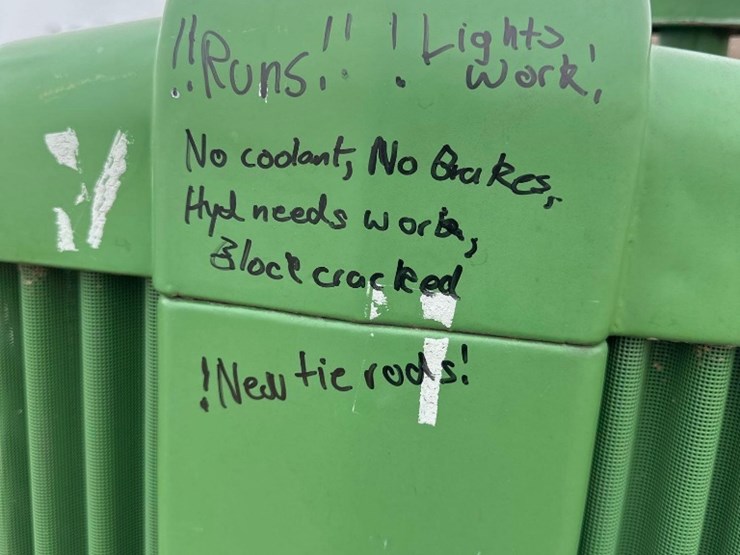 !!Runs!! ! Lights
work!
No coolant, No Brakes,
Hyd needs work,
Block cracked
!New tie rods!